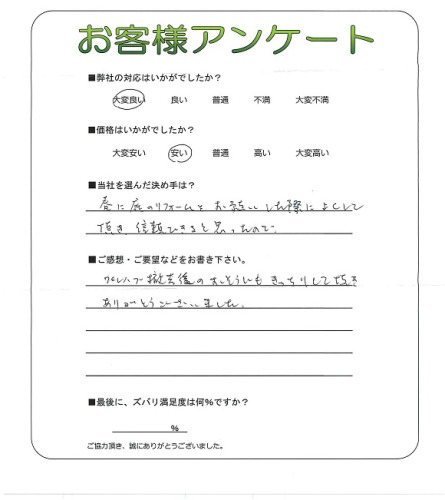 お客様アンケート
■弊社の対応はいかがでしたか？
大変良い 良い 普通 不満 大変不満
■価格はいかがでしたか？
大変安い 安い 普通 高い 大変高い
■当社を選んだ決め手は？
春に庭のリフォームをお願いした際によくして
頂き、信頼できると思ったので。
■ご感想・ご要望などをお書き下さい。
撤去後のおそうじもきっちりして頂き
ありがとうございました。
■最後に、ズバリ満足度は何％ですか？
％
ご協力頂き、誠にありがとうございました。